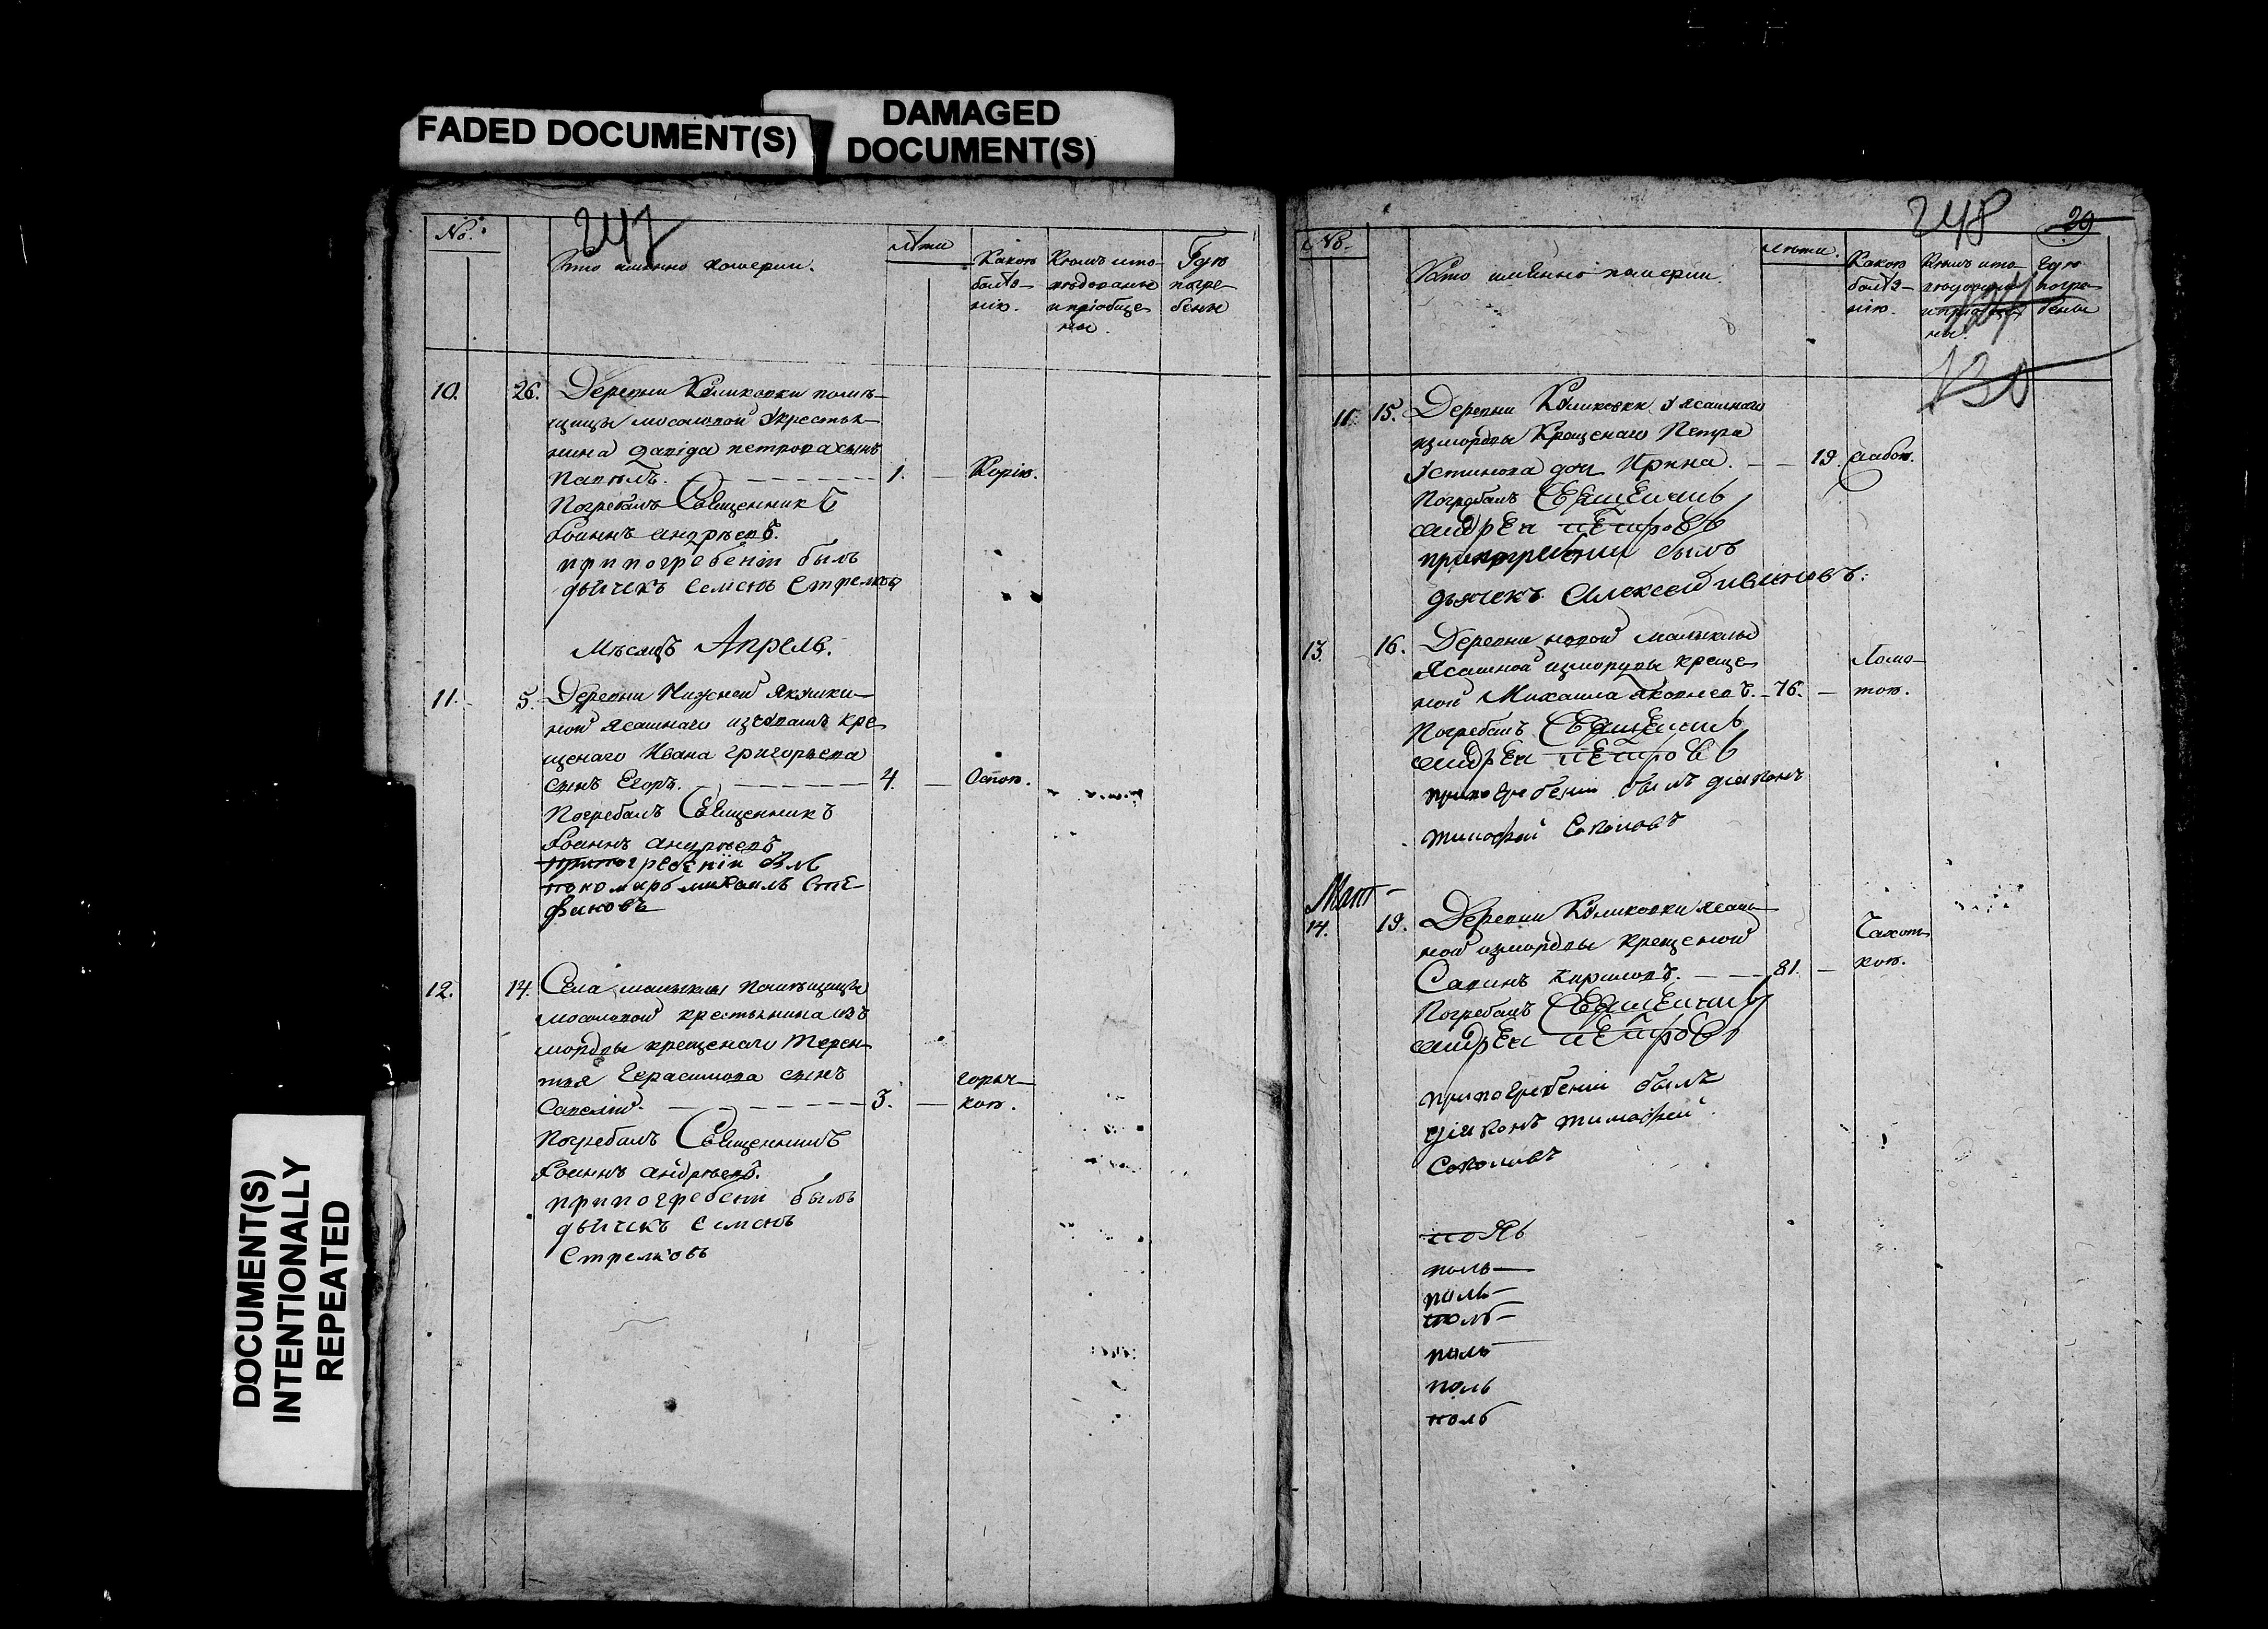 FADED DOCUMENT(S)
DAMAGED
DOCUMENT(S)
DOCUMENT(S)
INTENTIONALLY
REPEATED
247
№
Кто именно померли.
лѣта
Какою
болѣз-
нію.
Кѣмъ испо-
вѣдованы
и пріобще
ны.
Гдѣ
погре-
бены
10. 26. Деревни помѣ-
щицы Мосоловой крестья-
нина Давида Петрова сынъ
Павелъ. 1. — Корію.
Погребалъ Священникъ
Іоаннъ Андрѣевъ.
при погребеніи былъ
дьячекъ Семенъ Стрелковъ
Мѣсяцъ Апрель.
11. 5. Деревни Нижней Якушки-
ной ясашнаго изъ чувашъ кре
щенаго Ивана Григорьева
сынъ Егоръ. 4. — Оспою.
Погребалъ Священникъ
Іоаннъ Андрѣевъ
при погребеніи былъ
пономарь Михаилъ Сте-
фановъ
12. 14. Села Малыклы Помѣщицы
Мосоловой крестьянина изъ
мордвы крещенаго Терен-
тья Герасимова сынъ
Савелій. 3. — горяч-
кою.
Погребалъ Священникъ
Іоаннъ Андрѣевъ.
при погребеніи былъ
дьячекъ Семенъ
Стрелковъ
248
29
130
№
Кто имѣнно померли.
лѣта.
Какою
болѣз-
нію.
Кѣмъ испо-
вѣдованы
и пріобще
ны.
Гдѣ
погре-
бены
11. 15. Деревни ясашнаго
изъ мордвы Крещенаго Петра
Устинова дочь Ирина. — — 19. слабою.
Погребалъ Священникъ
Андрей Петровъ
при погребении былъ
дьячекъ Алексей Ивановъ.
13. 16. Деревни новой Малыклы
Ясашной из мордвы креще
ной Михаила Яковлевъ. — 76. — Ломо-
тою.
Погребалъ Священникъ
Андрей Петровъ
при погребении былъ дияконъ
Тимофей Соколовъ
14. 19. Деревни ясаш-
ной из мордвы крещеной
Савинъ Кириловъ. — — 81. — Чахот
кою.
Погребалъ Священникъ
Андрей Петровъ
при погребении былъ
диаконъ Тимофей
Соколовъ
ноль
ноль
ноль
ноль
ноль
ноль
ноль